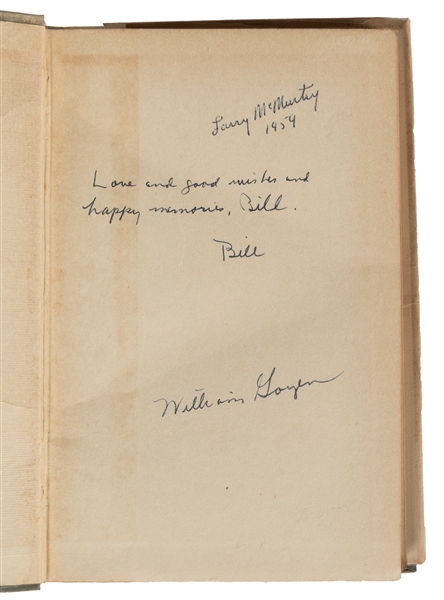 Larry McMurtry
1959
Love and good wishes and
happy memories, Bill.
Bill
William Goyen